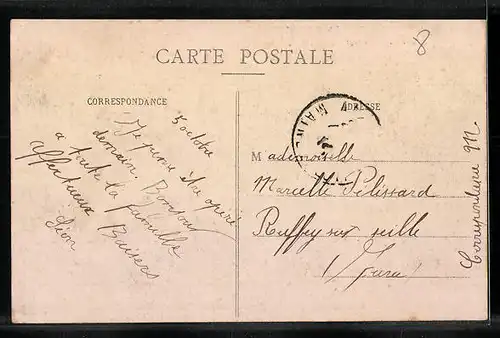 8
CARTE POSTALE
CORRESPONDANCE
ADRESSE
5 octobre
Je pense être opéré
demain. Bonjour
a toute la famille
affectueux Baisers
Léon
MAINE
Mademoiselle
Marcelle Pelissard
Ruffey sur seille
(Jura)
Correspondance M.